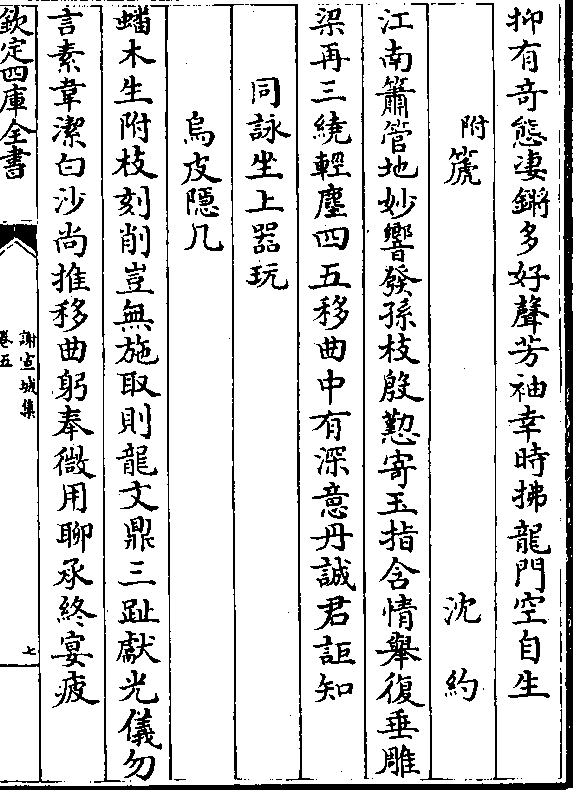 抑有奇態淒鏘多好聲芳袖幸時拂龍門空自生
附箎　沈約
江南簫管地妙響發孫枝殷懃寄玉指含情舉復垂雕
梁再三繞輕塵四五移曲中有深意丹誠君詎知
同詠坐上器玩
烏皮隱几
蟠木生附枝刻削豈無施取則龍文鼎三趾獻光儀勿
言素韋潔白沙尚推移曲躬奉微用聊承終宴疲
欽定四庫全書
謝宣城集
卷五
七